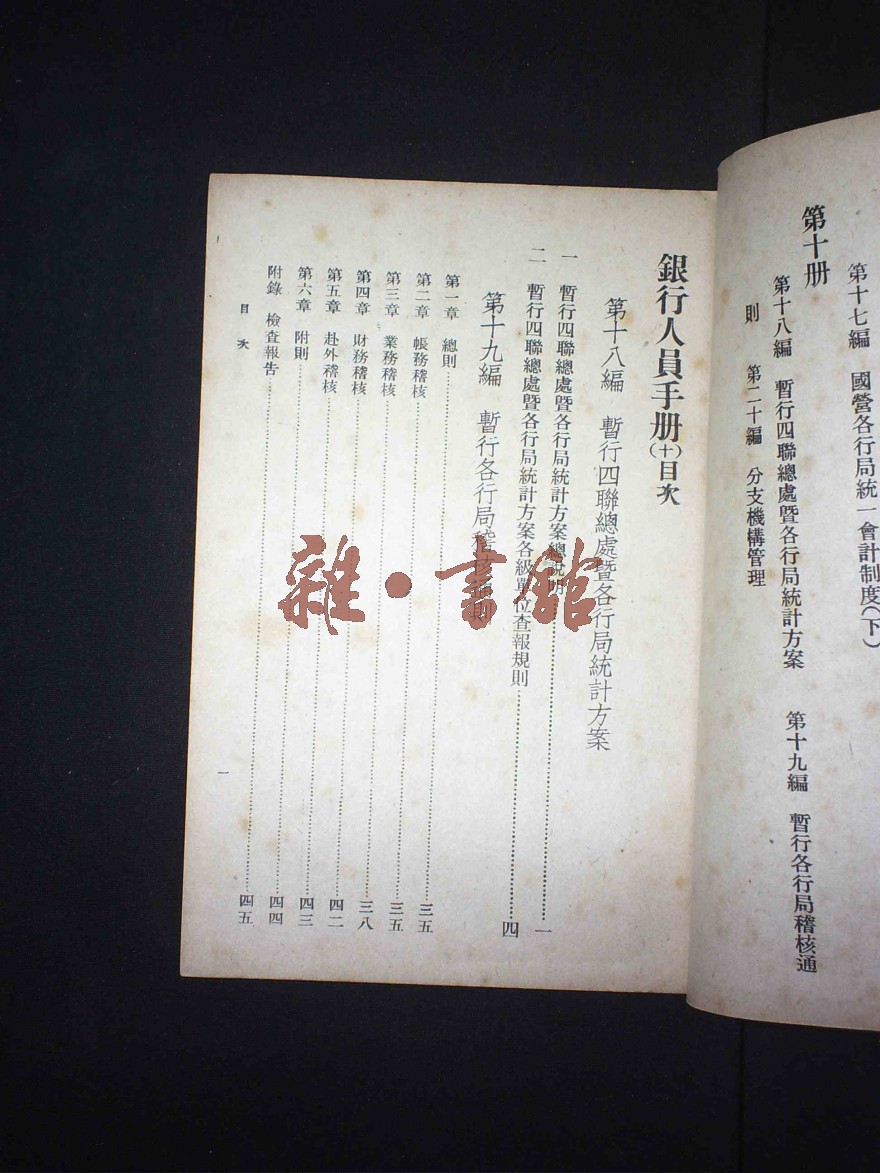 第十七編 國營各行局統一會計制度(下)
第十册
第十八編 暫行四聯總處暨各行局統計方案 第十九編 暫行各行局稽核通
則 第二十編 分支機構管理
銀行人員手册(十)目次
第十八編 暫行四聯總處暨各行局統計方案
一 暫行四聯總處暨各行局統計方案總說明……一
二 暫行四聯總處暨各行局統計方案各級單位查報規則……四
第十九編 暫行各行局稽核通則
第一章 總則……三五
第二章 帳務稽核……三五
第三章 業務稽核……三五
第四章 財務稽核……三八
第五章 赴外稽核……四二
第六章 附則……四三
附錄 檢查報告……四四
……四五
目次
一
雜·書館